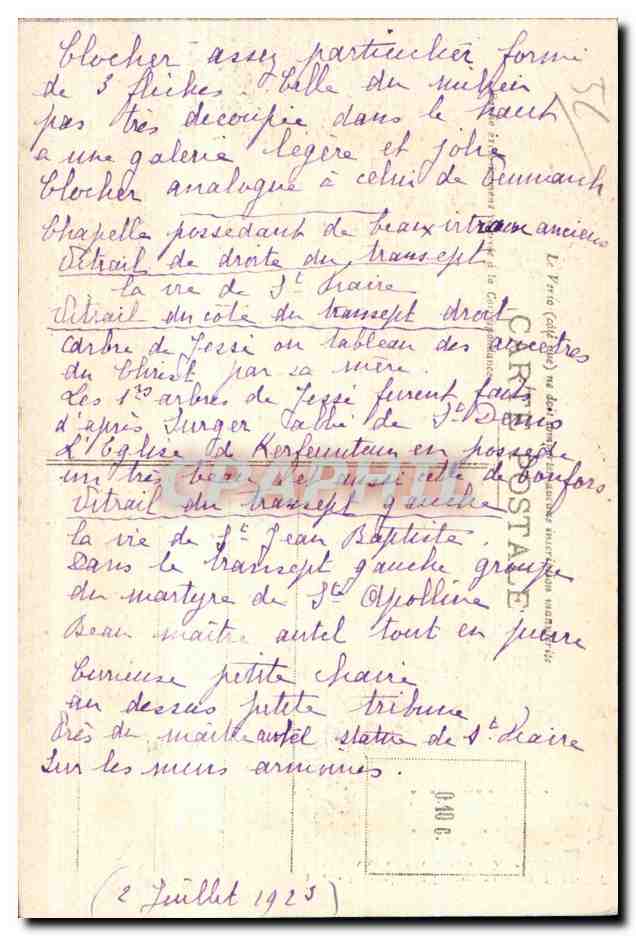 Clocher assez particulier formé
de 3 flèches. Celle du milieu
pas très découpée dans le haut
a une galerie légère et jolie
Clocher analogue à celui de
Chapelle possédant de beaux vitraux anciens
Vitrail de droite du transept
la vie de St
Vitrail du coté du transept droit
L'arbre de Jessé ou tableau des ancêtres
du Christ par sa mère.
Les 1ers arbres de Jessé furent faits
d'après Surger abbé de St Denis
L'Eglise d Kerfeunteun en possède
un très beau et aussi celle de Confors.
Vitrail du transept gauche
la vie de St Jean Baptiste.
Dans le transept gauche groupe
du martyre de Ste Apolline
Beau maître autel tout en pierre
Curieuse petite chaire
au dessus petite tribune
Près du maitre autel statue de St
Sur les murs armoiries.
(2 Juillet 1923)
52
CARTE POSTALE
Le Verso (côté vue) ne doit porter aucune inscription manuscrite
0.10 c.
CPAPHIL